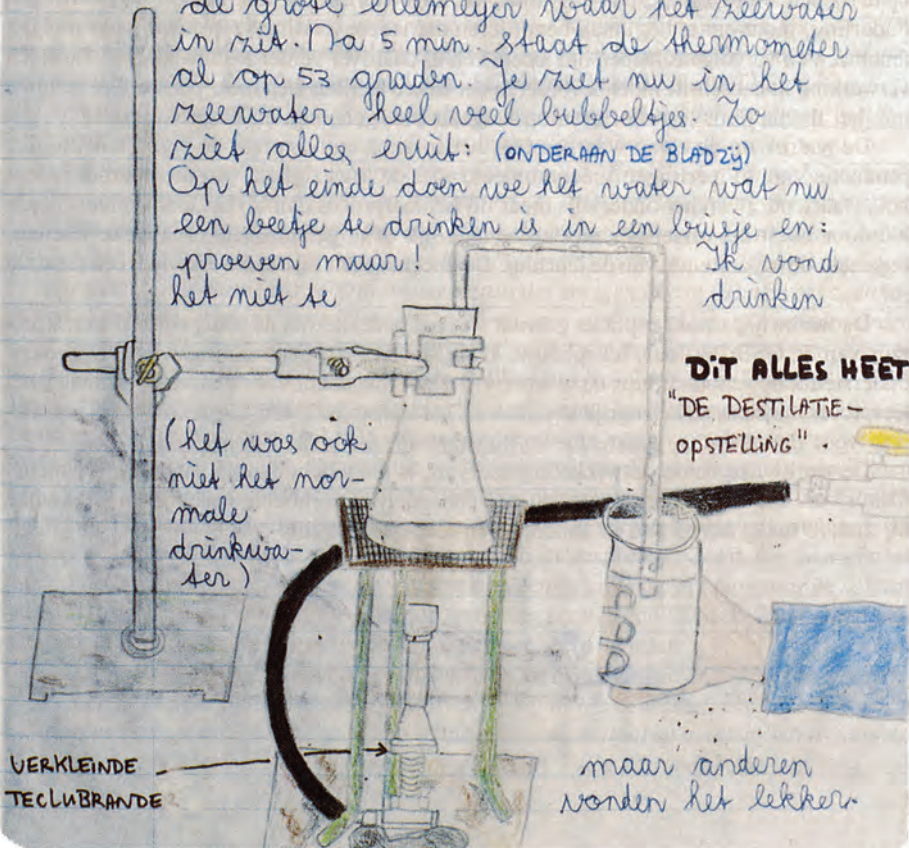 de grote erlemeijer waar het zeewater
in zit. Na 5 min. staat de thermometer
al op 53 graden. Je ziet nu in het
zeewater heel veel bubbeltjes. Zo
ziet alles eruit: (ONDERAAN DE BLADZIJ)
Op het einde doen we het water wat nu
een beetje te drinken is in een buisje en:
proeven maar! Ik vond
het niet te drinken
DIT ALLES HEET
"DE DESTILATIE-
OPSTELLING"
(het was ook
niet het nor-
male
drinkwa-
ter)
maar anderen
vonden het lekker.
VERKLEINDE
TECLUBRANDE